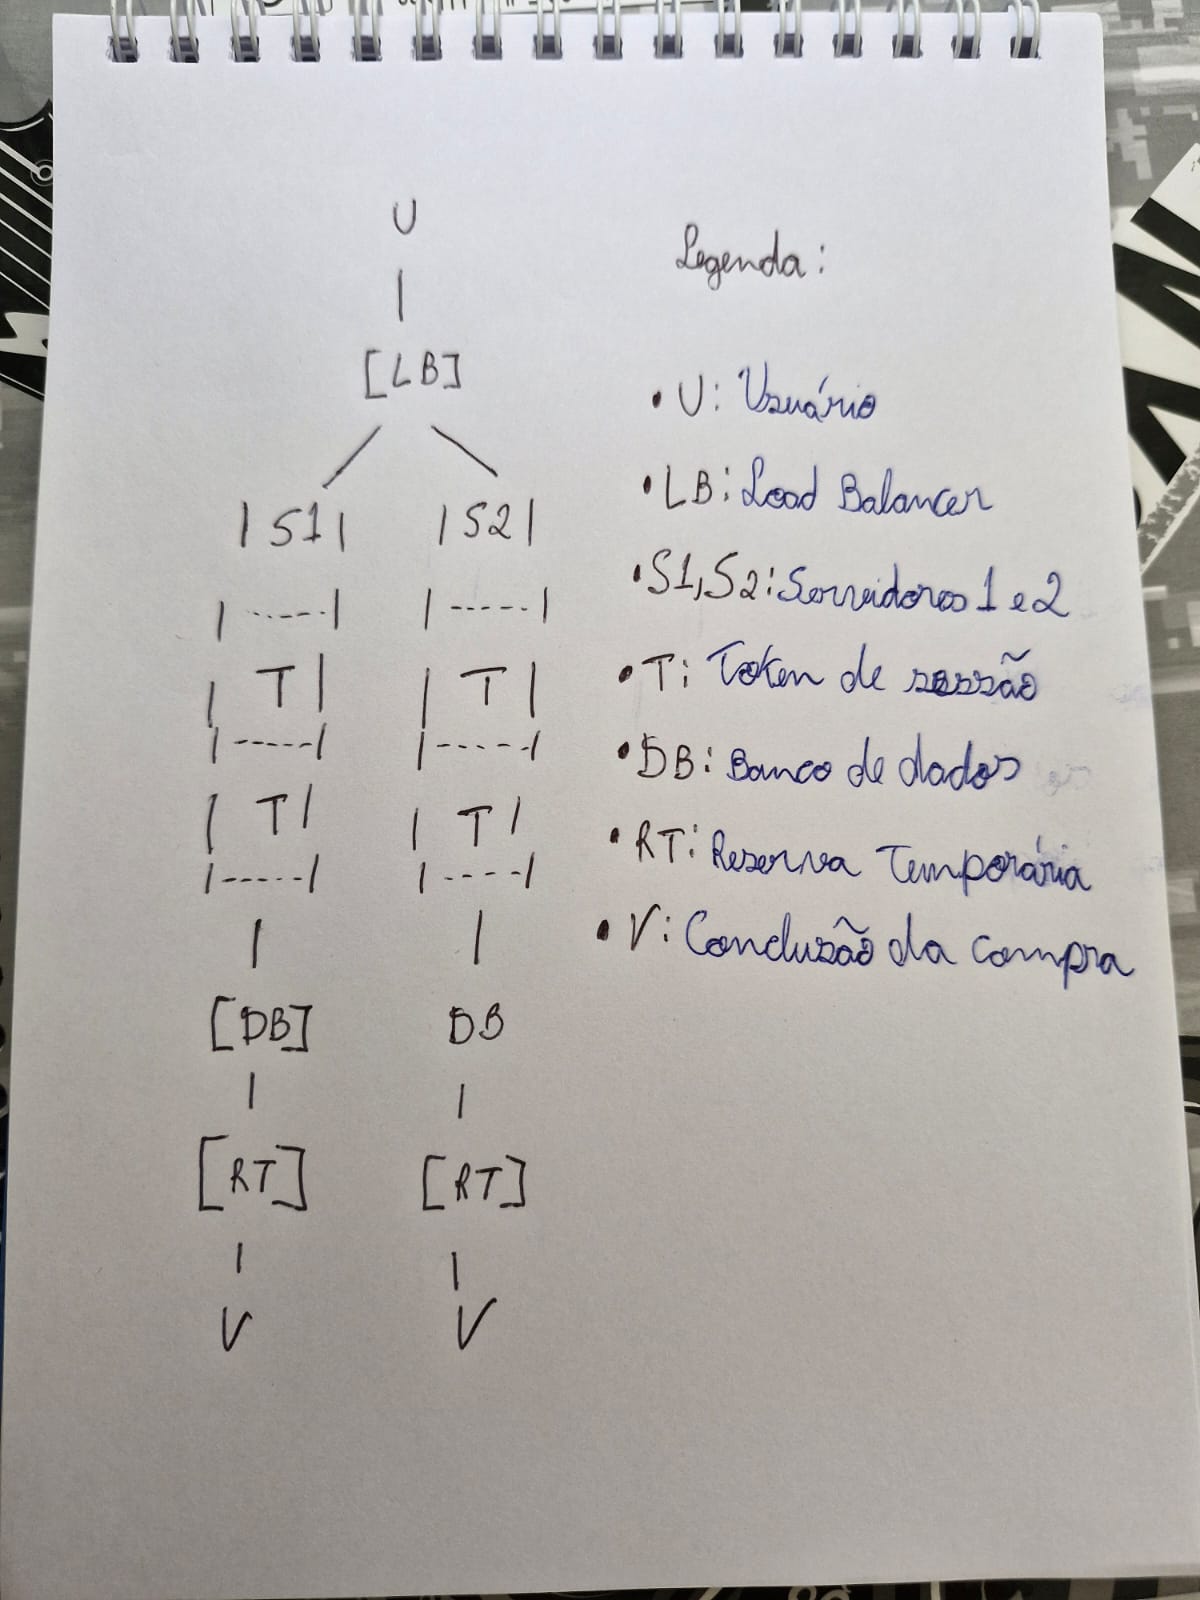 U
|
[LB]
/ \
|S1| |S2|
|-----| |-----|
|T| |T|
|-----| |-----|
|T| |T|
|-----| |-----|
| |
[DB] DB
| |
[RT] [RT]
| |
V V
Legenda:
• U: Usuário
• LB: Load Balancer
• S1,S2: Servidores 1 e 2
• T: Token de sessão
• DB: Banco de dados
• RT: Reserva Temporária
• V: Conclusão da compra